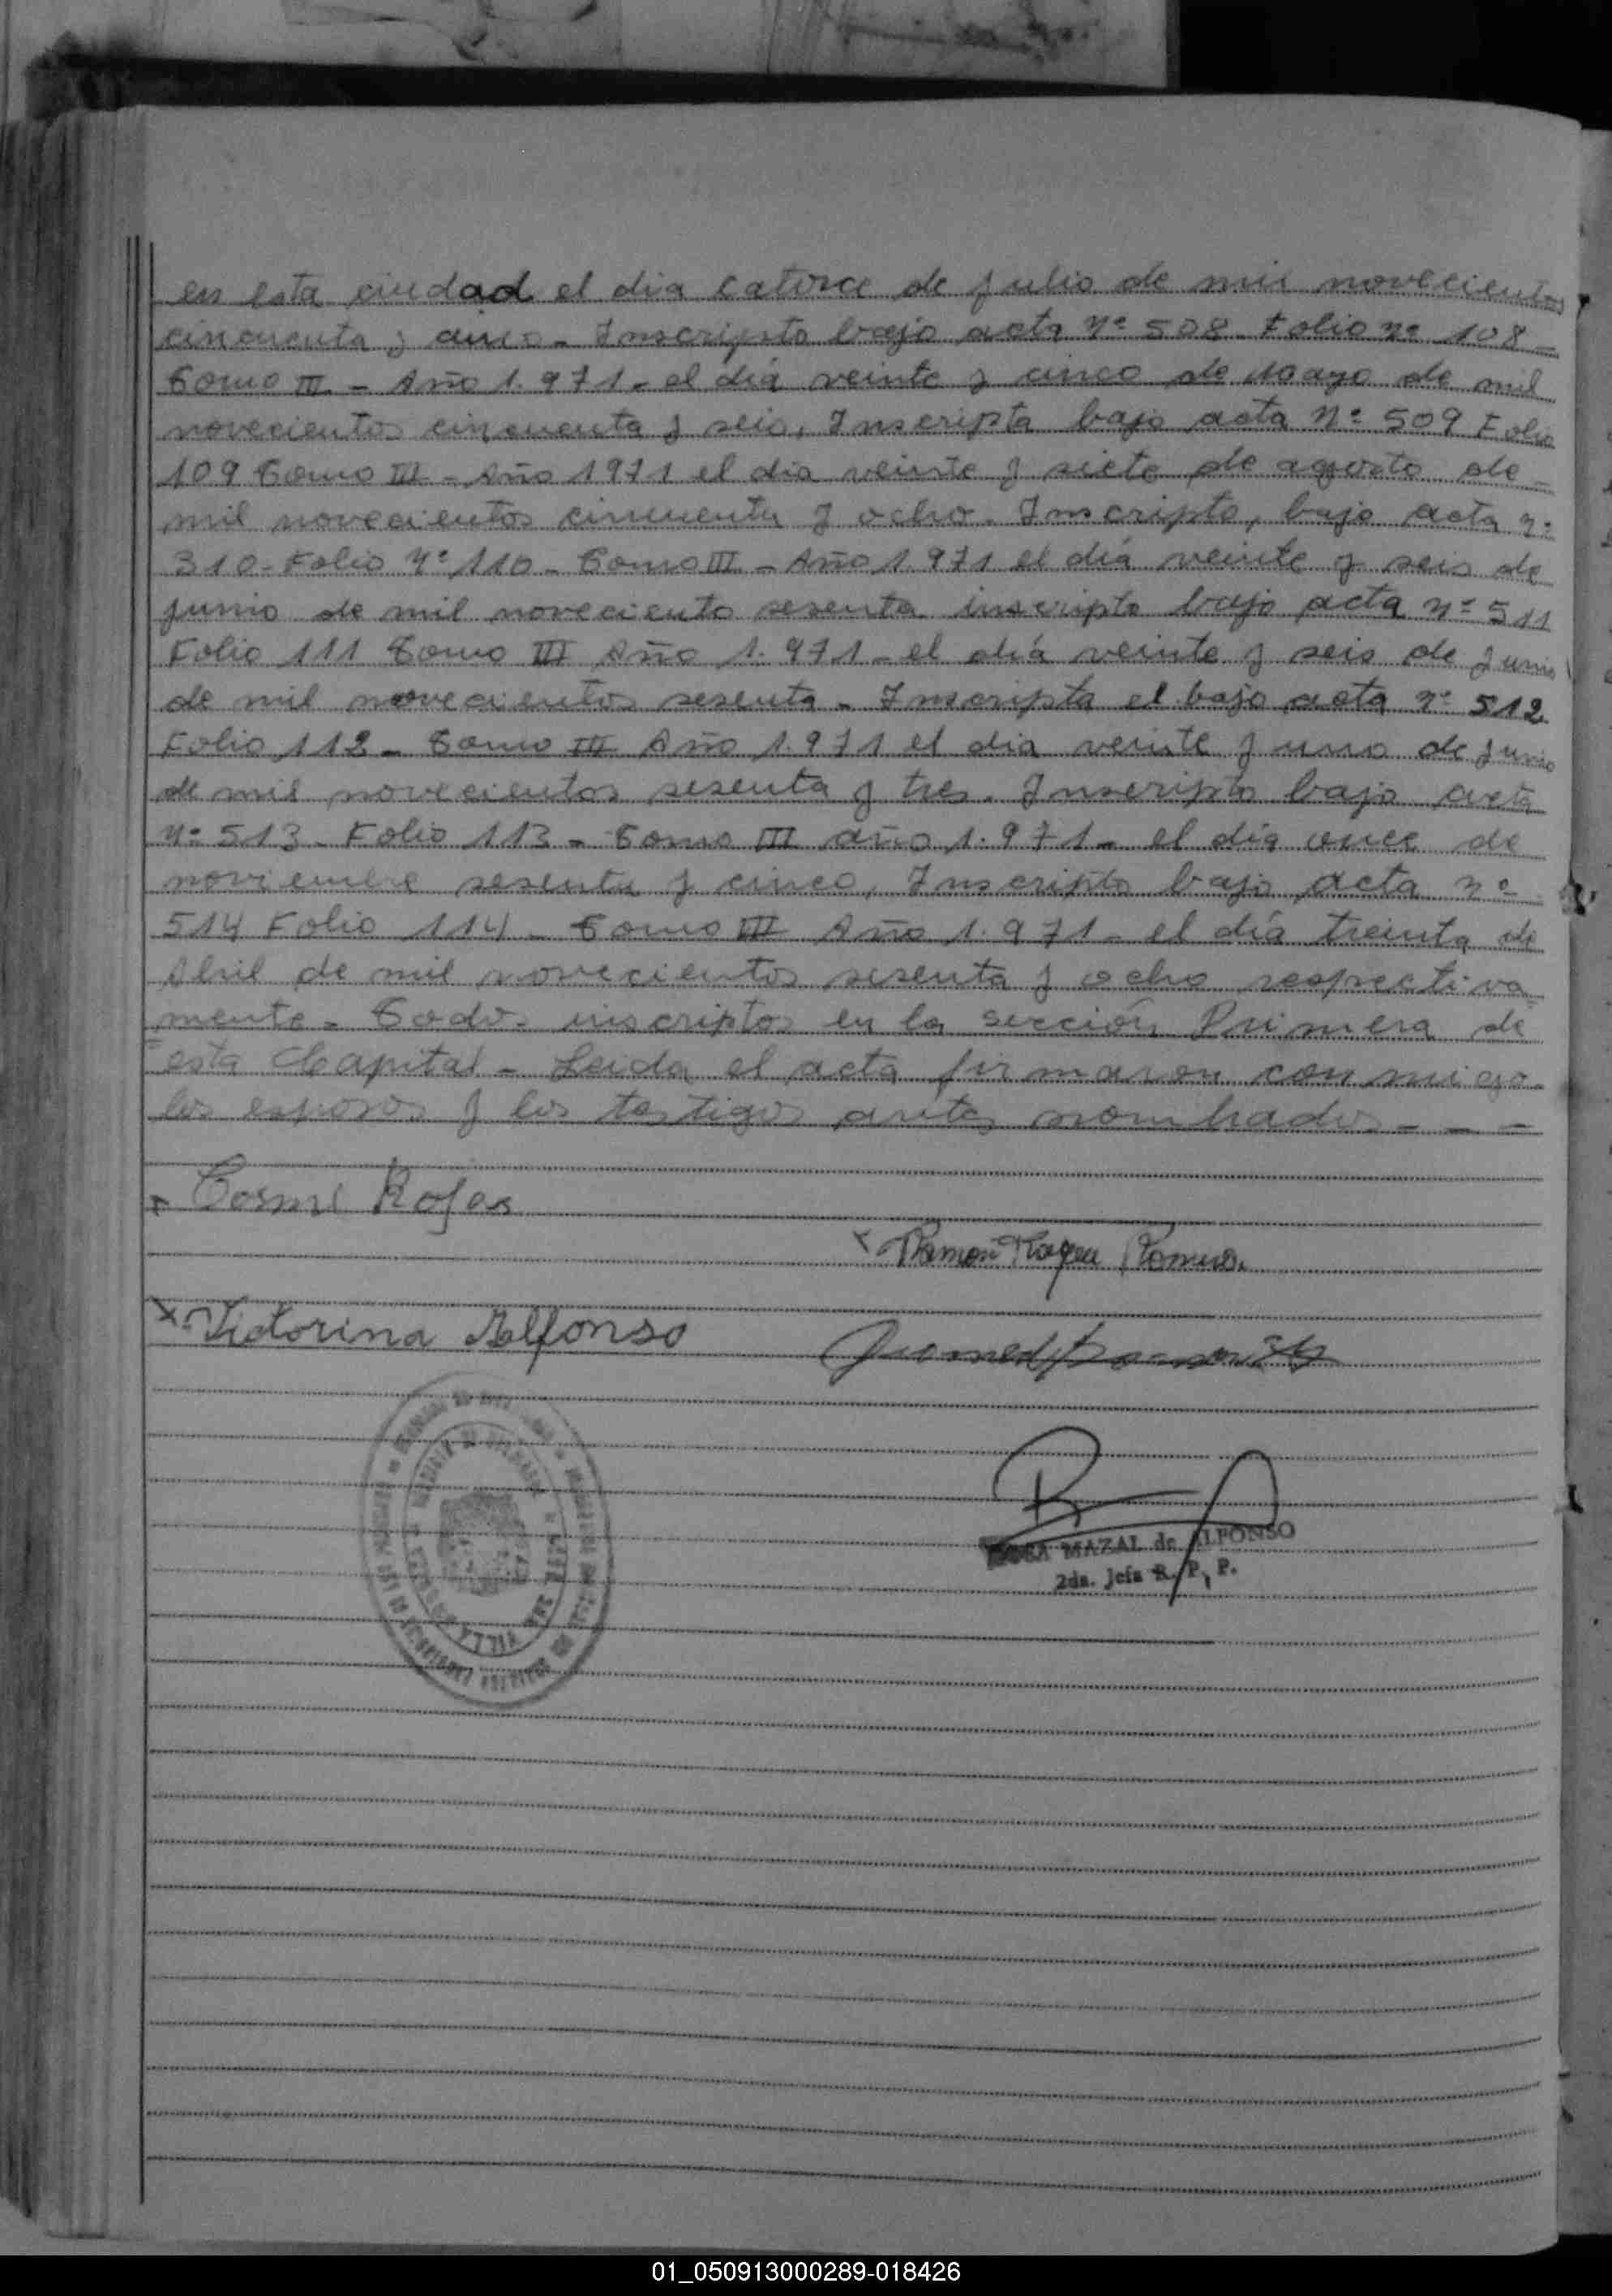 en esta ciudad el dia catorce de Julio de mil novecientos
cincuenta y cinco - Inscripto bajo acta Nº 508 - Folio nº 108 -
Tomo III - Año 1.971 - el día veinte y cinco de Mayo de mil
novecientos cincuenta y seis, Inscripta bajo acta Nº 509 Folio
109 Tomo III - Año 1971 el dia veinte y siete de agosto de -
mil novecientos cincuenta y ocho - Inscripto, bajo acta nº
310 - Folio Nº 110 - Tomo III - Año 1971 el día veinte y seis de
junio de mil noveciento sesenta inscripto bajo acta nº 511
Folio 111 Tomo III Año 1.971 - el día veinte y seis de Junio
de mil novecientos sesenta - Inscripta el bajo acta nº 512
Folio 112 - Tomo III Año 1.971 el dia veinte y uno de Junio
de mil novecientos sesenta y tres. Inscripto bajo acta
Nº 513 - Folio 113 - Tomo III año 1.971 - el día once de
noviembre sesenta y cinco, Inscripto bajo acta nº
514 Folio 114 - Tomo III Año 1.971 - el día treinta de
Abril de mil novecientos sesenta y ocho respectiva
mente - Todos inscriptos en la sección Primera de
esta Capital - Leida el acta firmaron conmigo
los esposos y los testigos antes nombrados - - -
x Cosme Rojas
x Ramon Romero
x Victorina Alfonso
MAZAL de ALFONSO
2da. Jefa R. P. P.
VILLA
01_050913000289-018426